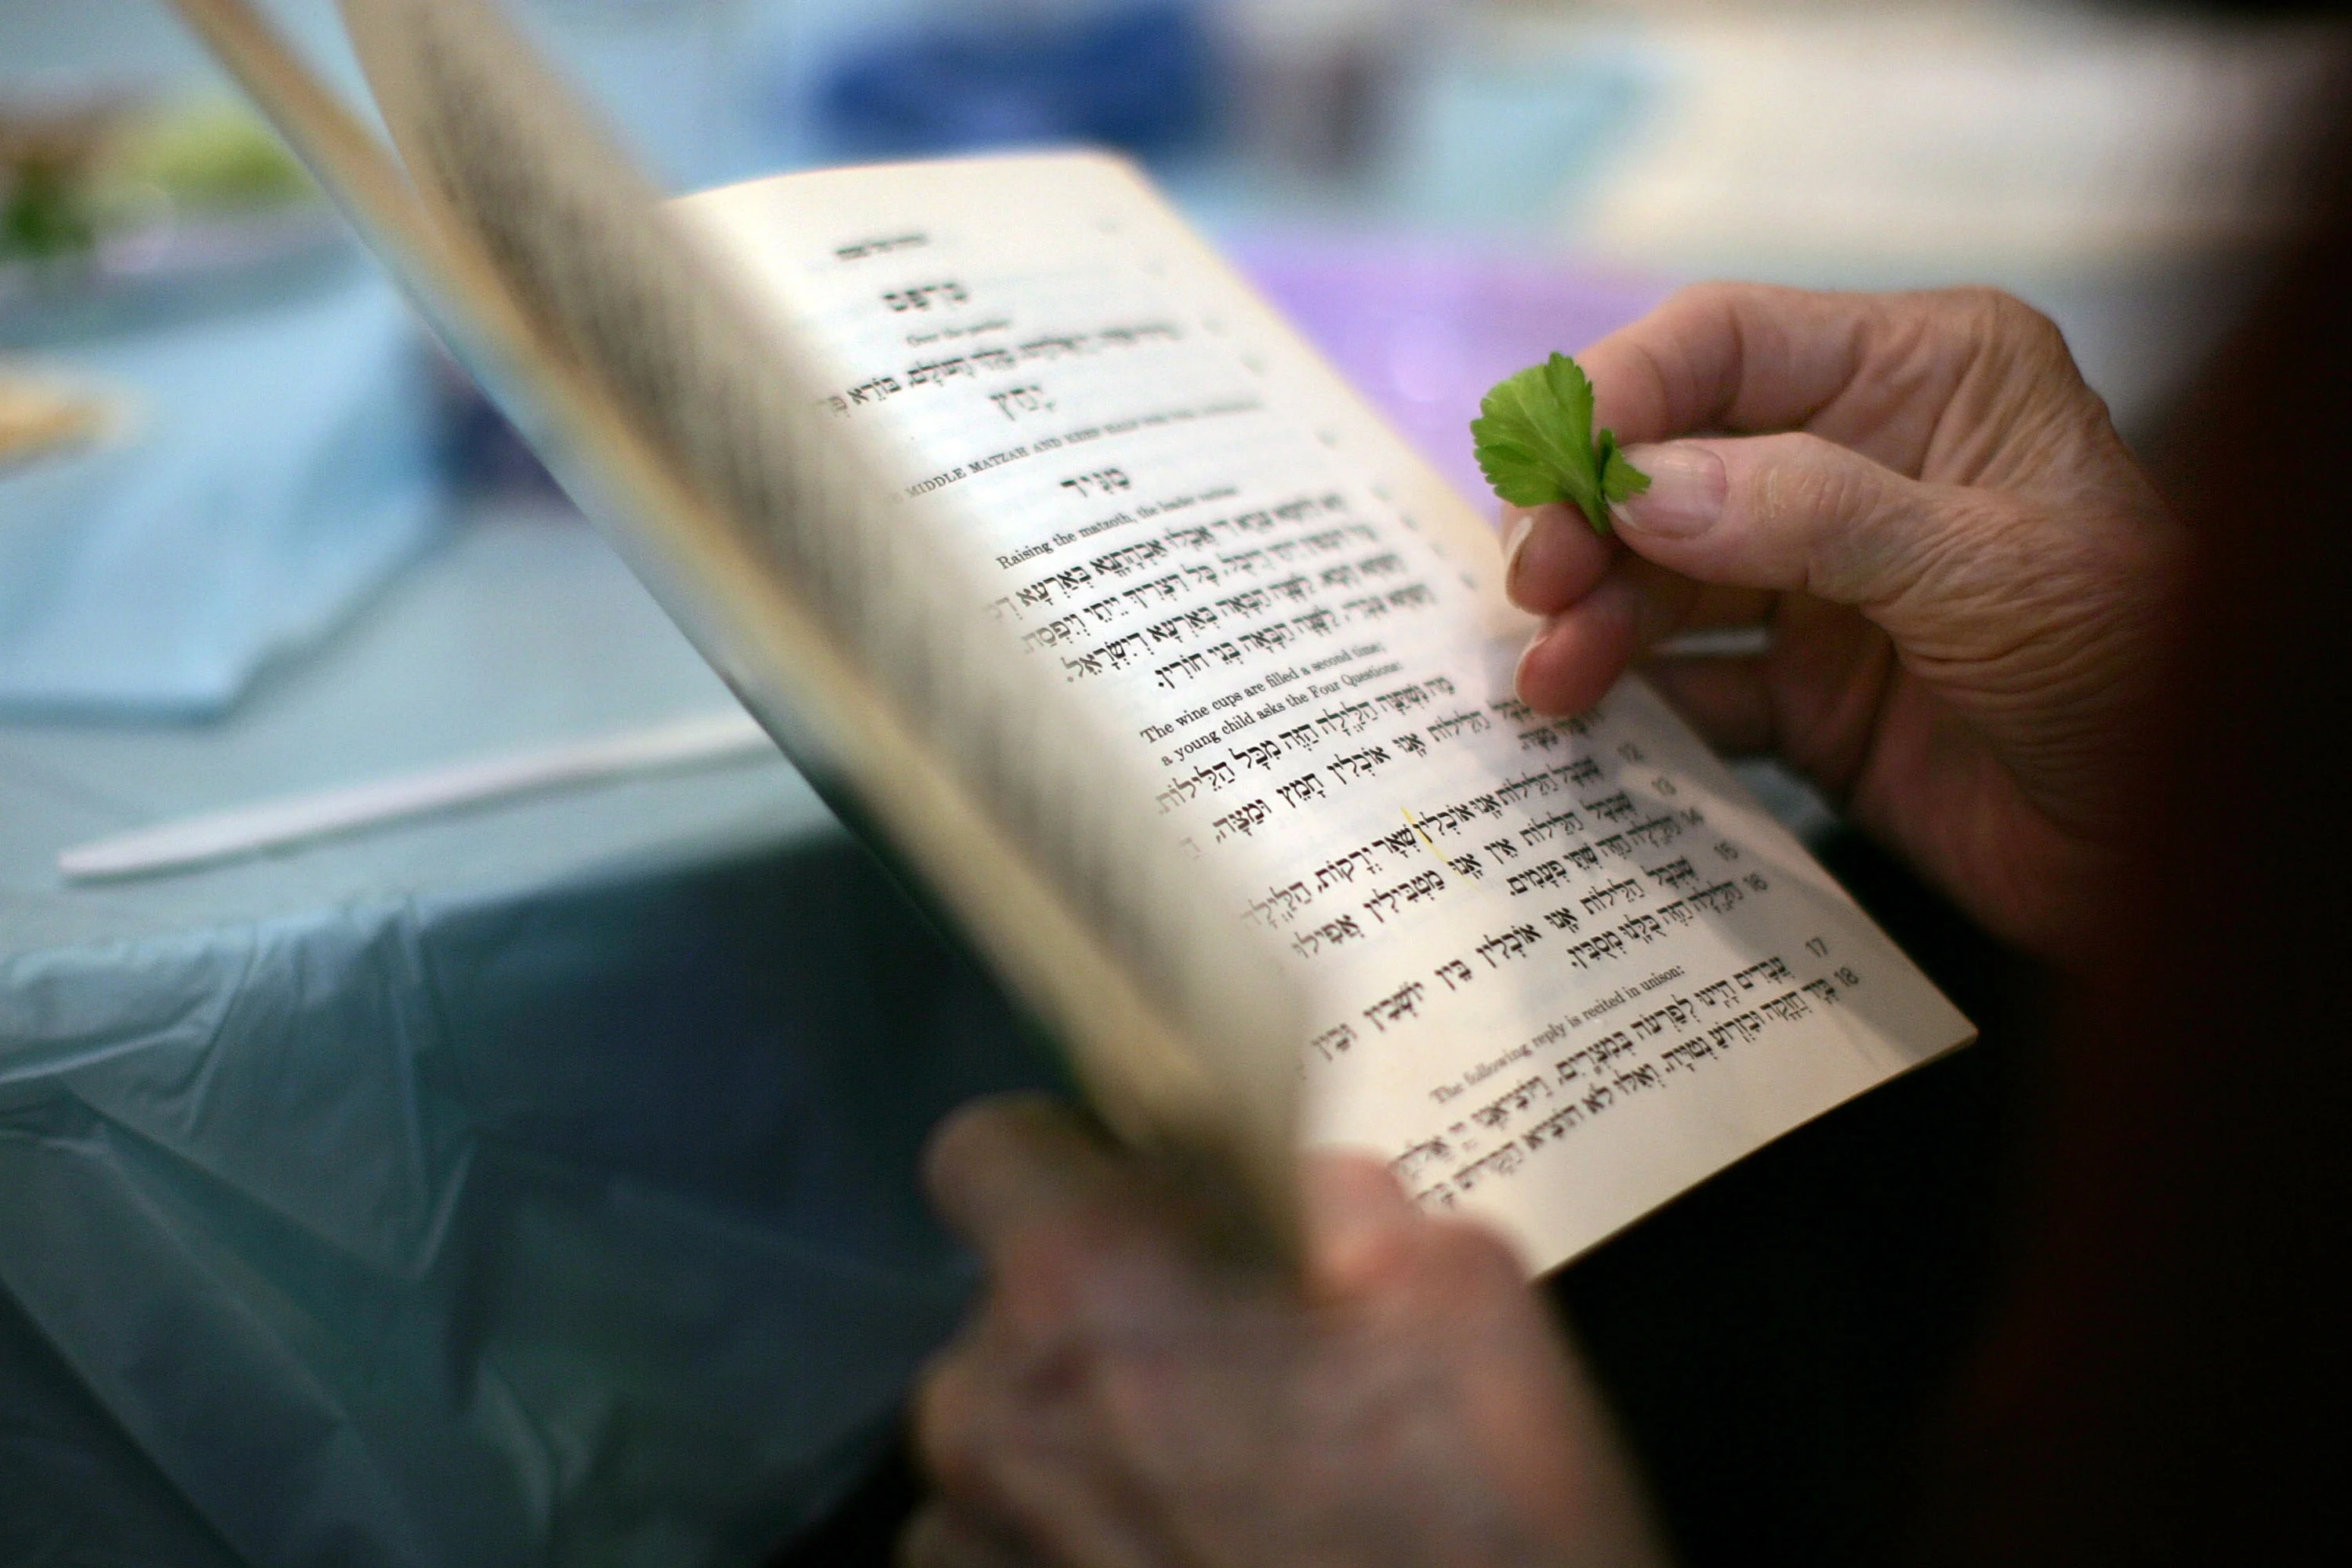 כרפס
בורא פ
יחץ
MIDDLE MATZAH AND KEEP HALF FOR THE
מגיד
Raising the matzoth, the leader recites:
הא לחמא עניא די אכלו אבהתנא בארעא ד
כל דכפין ייתי ויכל, כל דצריך ייתי ויפסח.
השתא הכא, לשנה הבאה בארעא דישראל.
השתא עבדי, לשנה הבאה בני חורין.
The wine cups are filled a second time;
a young child asks the Four Questions:
מַה נִּשְׁתַּנָּה הַלַּיְלָה הַזֶּה מִכָּל הַלֵּילוֹת
שֶׁבְּכָל הַלֵּילוֹת אָנוּ אוֹכְלִין חָמֵץ וּמַצָּה, ה
מַצָּה. 12
שֶׁבְּכָל הַלֵּילוֹת אָנוּ אוֹכְלִין שְׁאָר יְרָקוֹת, הַלַּיְלָה 13
שֶׁבְּכָל הַלֵּילוֹת אֵין אָנוּ מַטְבִּילִין אֲפִילוּ 14
הַלַּיְלָה הַזֶּה שְׁתֵּי פְעָמִים. 15
שֶׁבְּכָל הַלֵּילוֹת אָנוּ אוֹכְלִין בֵּין יוֹשְׁבִין וּבֵין 16
הַלַּיְלָה הַזֶּה כֻּלָּנוּ מְסֻבִּין.
The following reply is recited in unison:
עֲבָדִים הָיִינוּ לְפַרְעֹה בְּמִצְרָיִם, וַיּוֹצִיאֵנוּ יְיָ אֱלֹהֵי 17
בְּיָד חֲזָקָה וּבִזְרוֹעַ נְטוּיָה. וְאִלּוּ לֹא הוֹצִיא הַקָּדוֹשׁ בָּ 18